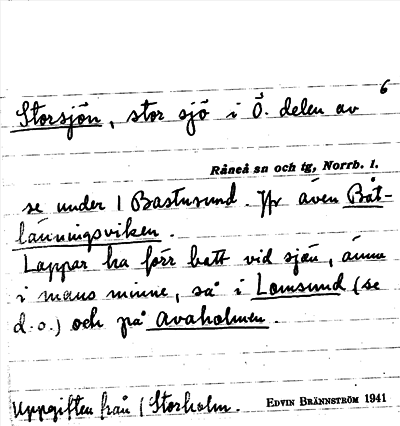 6
Storsjön, stor sjö i Ö. delen av
Råneå sn och tg, Norrb. l.
se under 1 Bastusund. Jfr även Båt-
länningsviken.
Lappar ha förr bott vid sjön, ännu
i mans minne, så i Lomsund (se
d. o.) och på Avaholmen.
Uppgiften från / Storholm.
EDVIN BRÄNNSTRÖM 1941